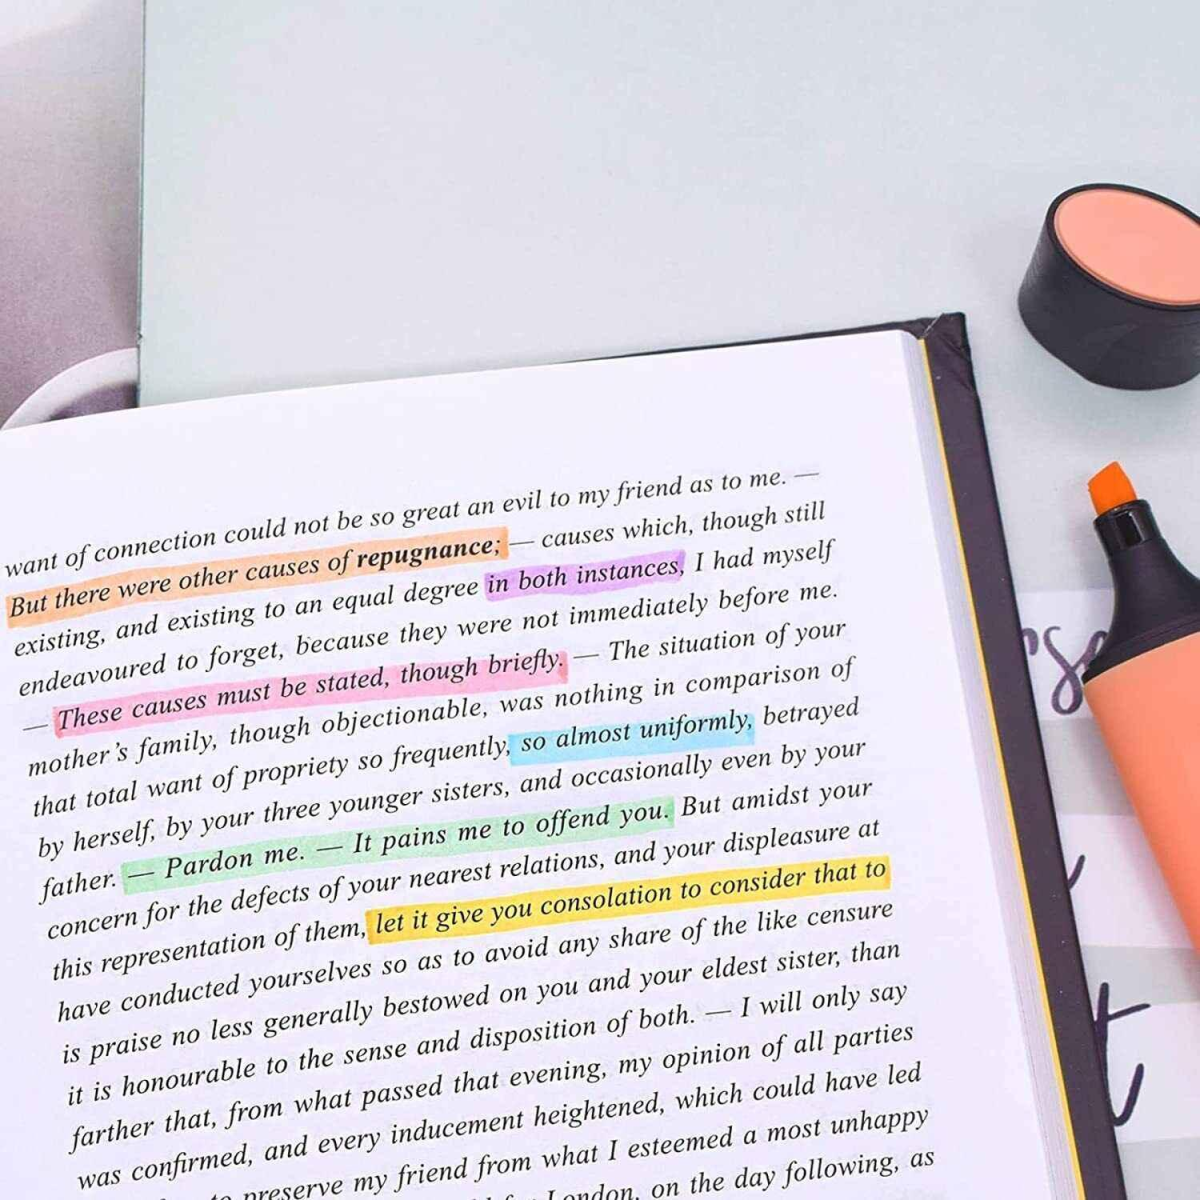 want of connection could not be so great an evil to my friend as to me. —
But there were other causes of repugnance; — causes which, though still
existing, and existing to an equal degree in both instances, I had myself
endeavoured to forget, because they were not immediately before me.
— These causes must be stated, though briefly. — The situation of your
mother's family, though objectionable, was nothing in comparison of
that total want of propriety so frequently, so almost uniformly, betrayed
by herself, by your three younger sisters, and occasionally even by your
father. — Pardon me. — It pains me to offend you. But amidst your
concern for the defects of your nearest relations, and your displeasure at
this representation of them, let it give you consolation to consider that to
have conducted yourselves so as to avoid any share of the like censure
is praise no less generally bestowed on you and your eldest sister, than
it is honourable to the sense and disposition of both. — I will only say
farther that, from what passed that evening, my opinion of all parties
was confirmed, and every inducement heightened, which could have led
to preserve my friend from what I esteemed a most unhappy
London, on the day following, as